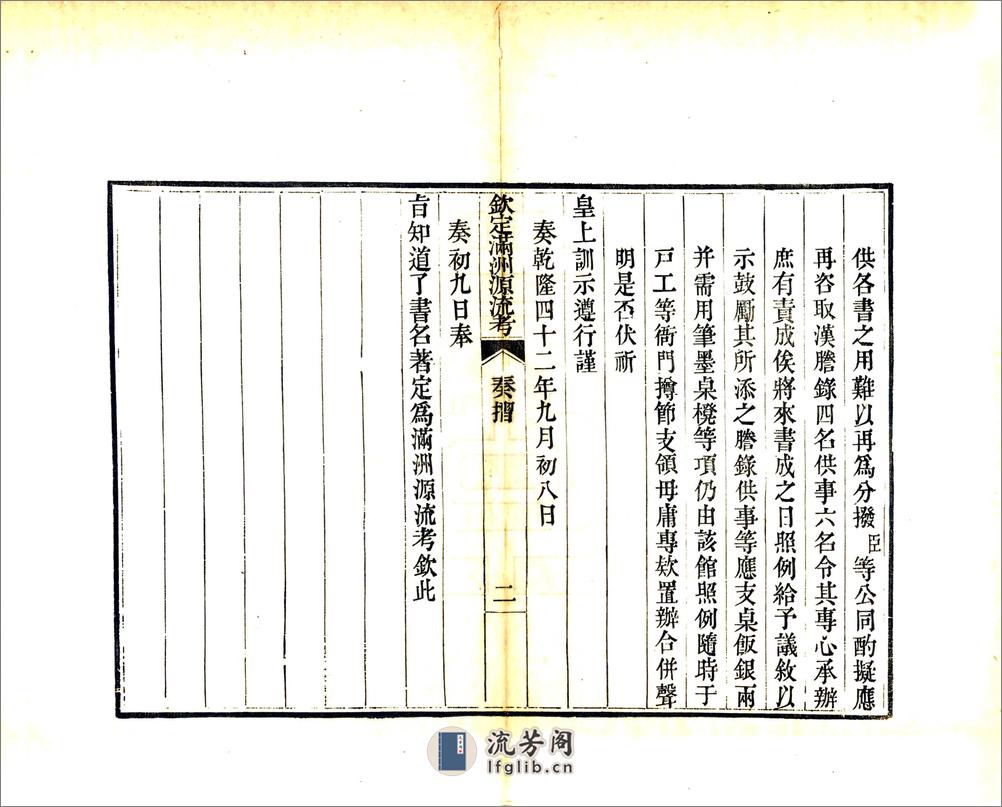 供各書之用難以再爲分撥臣等公同酌擬應
再咨取漢謄錄四名供事六名令其專心承辦
庶有責成俟將來書成之日照例給予議敘以
示鼓勵其所添之謄錄供事等應支桌飯銀兩
并需用筆墨桌櫈等項仍由該館照例隨時于
戸工等衙門撙節支領毋庸專欵置辦合併聲
明是否伏祈
皇上訓示遵行謹
奏乾隆四十二年九月初八日
欽定滿洲源流考 奏摺 二
奏初九日奉
㫖知道了書名著定爲滿洲源流考欽此
流芳阁
lfglib.cn